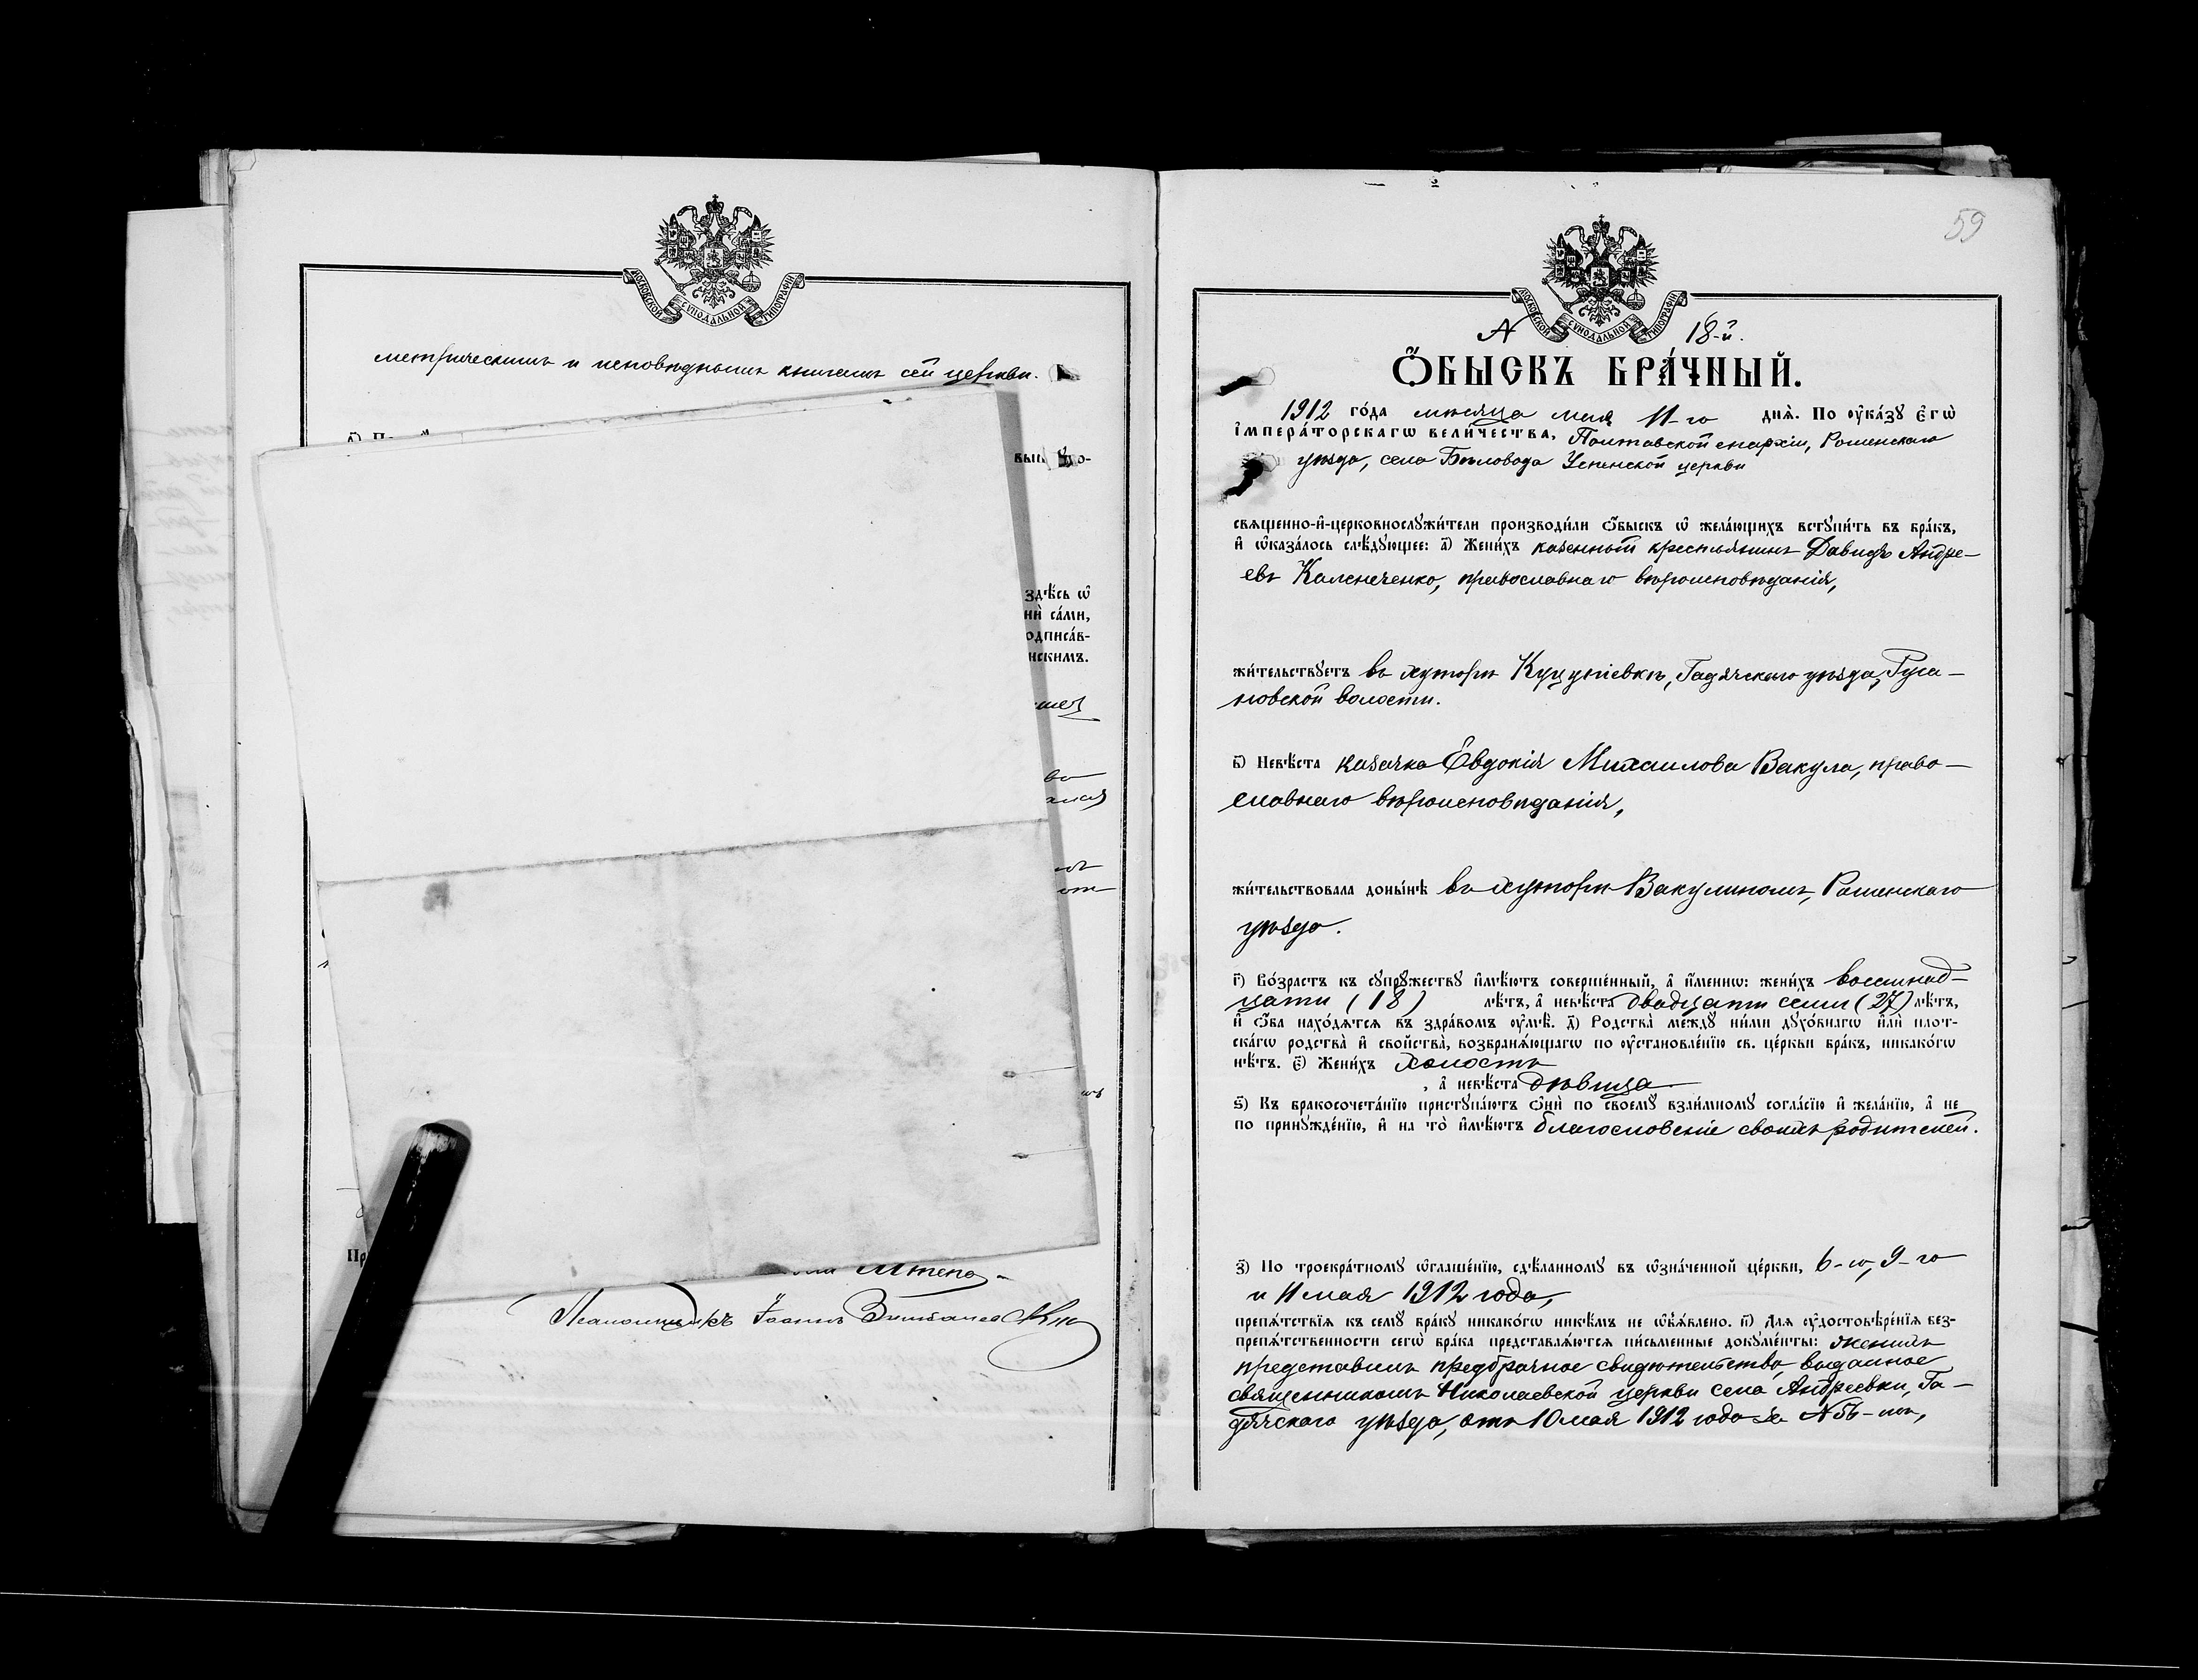 МОСКОВСКОЙ СѴНОДАЛЬНОЙ ТИПОГРАФІИ
метрическимъ и исповѣднымъ книгамъ сей церкви.
здѣсь ѡ
са́ми,
одписа́в-
нскимъ.
59
МОСКОВСКОЙ СѴНОДАЛЬНОЙ ТИПОГРАФІИ
№ 18-й.
Ѻ҆БЫСКЪ БРА́ЧНЫЙ.
1912 го́да мѣсяца мая 11-го днѧ̀. По ᲂу҆ка́зꙋ є҆гѡ̀
і҆мпера́торскагѡ вели́чества, Полтавской епархіи, Роменскаго
уѣзда, села Бѣловода Успенской церкви
свѧщенно-и҆-церковнослꙋжи́тели производи́ли ѻ҆́быскъ ѡ҆ жела́ющихъ встꙋпи́ть въ бра́къ,
и҆ ѡ҆каза́лось слѣ́дꙋющее: а҃) Жени́хъ казенный крестьянинъ Давидъ Андре-
евъ Каленеченко, православнаго вѣроисповѣданія,
жи́тельствꙋетъ въ хуторѣ Куцупіевкѣ, Гадячскаго уѣзда, Руса-
новской волости.
в҃) Невѣ́ста казачка Евдокія Михаилова Вакула, право-
славнаго вѣроисповѣданія,
жи́тельствовала доны́нѣ въ хуторѣ Вакулиномъ, Роменскаго
уѣзда.
г҃) Во́зрастъ къ сꙋпрꙋ́жествꙋ и҆мѣ́ютъ соверше́нный, а҆ и҆́меннѡ: жени́хъ восемнад-
цати (18) лѣ́тъ, а҆ невѣ́ста двадцати семи (27) лѣ́тъ,
и҆ ѻ҆́ба нахо́дѧтсѧ въ здра́вомъ ᲂу҆мѣ̀. д҃) Родства̀ междꙋ̀ ни́ми дꙋхо́внагѡ и҆лѝ плот-
ска́гѡ родства̀ и҆ свойства̀, возбранѧ́ющагѡ по ᲂу҆становле́нїю св. це́ркви бра́къ, никако́гѡ
нѣ́тъ. є҃) Жени́хъ холостъ
, а҆ невѣ́ста дѣвица
ѕ҃) Къ бракосочета́нїю пристꙋпа́ютъ ѻ҆нѝ по своемꙋ̀ взаи́мномꙋ согла́сїю и҆ жела́нїю, а҆ не
по принꙋжде́нїю, и҆ на то̀ и҆мѣ́ютъ благословеніе своихъ родителей.
з҃) По троекра́тномꙋ ѡ҆глаше́нїю, сдѣ́ланномꙋ въ ѡ҆зна́ченной це́ркви, 6-го, 9-го
и 11 мая 1912 года,
препѧ́тствїѧ къ семꙋ̀ бра́кꙋ никако́гѡ никѣ́мъ не ѡ҆б̾ѧ́влено. и҃) Длѧ ᲂу҆достовѣ́ренїѧ без-
препѧ́тственности сегѡ̀ бра́ка представлѧ́ютсѧ пи́сьменные докꙋме́нты: женихъ
представилъ предбрачное свидѣтельство, выданное
священникомъ Николаевской церкви села Андреевки, Га-
дячскаго уѣзда, отъ 10 мая 1912 года за №